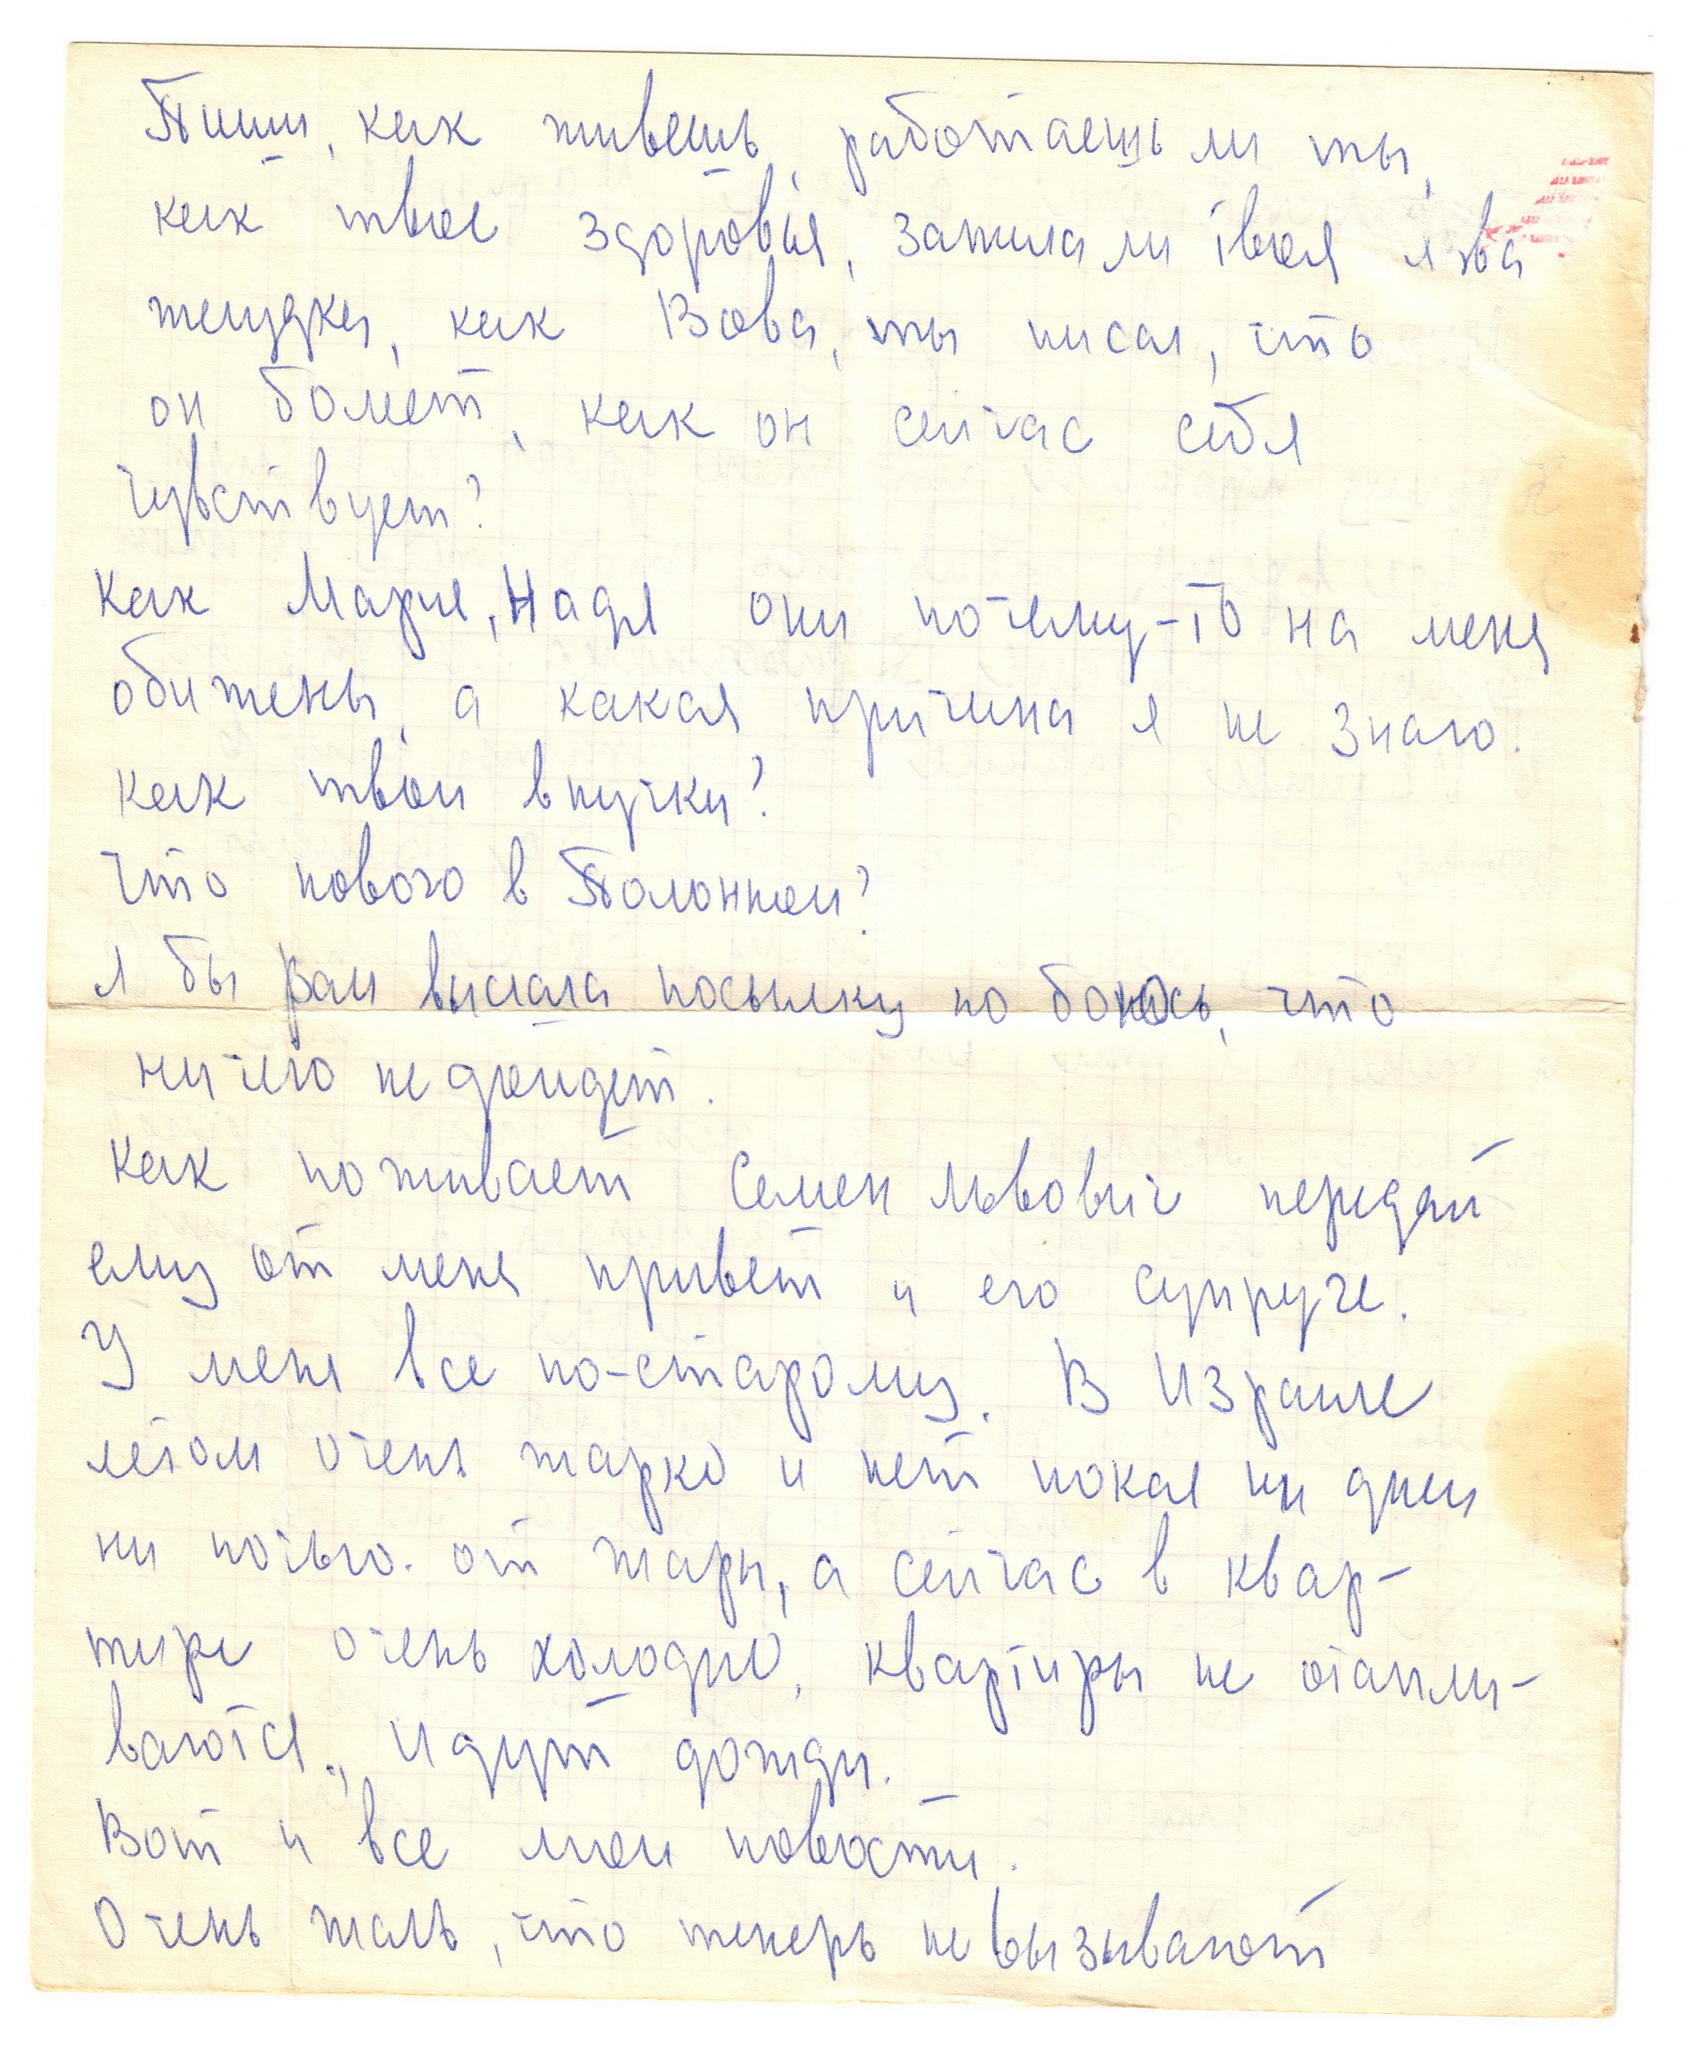 Пиши, как живешь, работаешь ли ты,
как твое здоровья, зажила ли твоя язва
желудка, как Вова, ты писал, что
он болеет, как он сейчас себя
чувствует?
Как Мария, Надя они почему-то на меня
обижены, а какая причина я не знаю.
Как твои внучки?
Что нового в Полонном?
Я бы вам выслала посылку но боюсь, что
ничего не дойдет.
Как поживает Семен Львович передай
ему от меня привет и его супруге.
У меня все по-старому. В Израиле
летом очень жарко и нет покоя ни днем
ни ночью. от жары, а сейчас в квар-
тире очень холодно, квартиры не отапли-
ваются., Идут дожди.
Вот и все мои новости.
Очень жаль, что теперь не вызывают